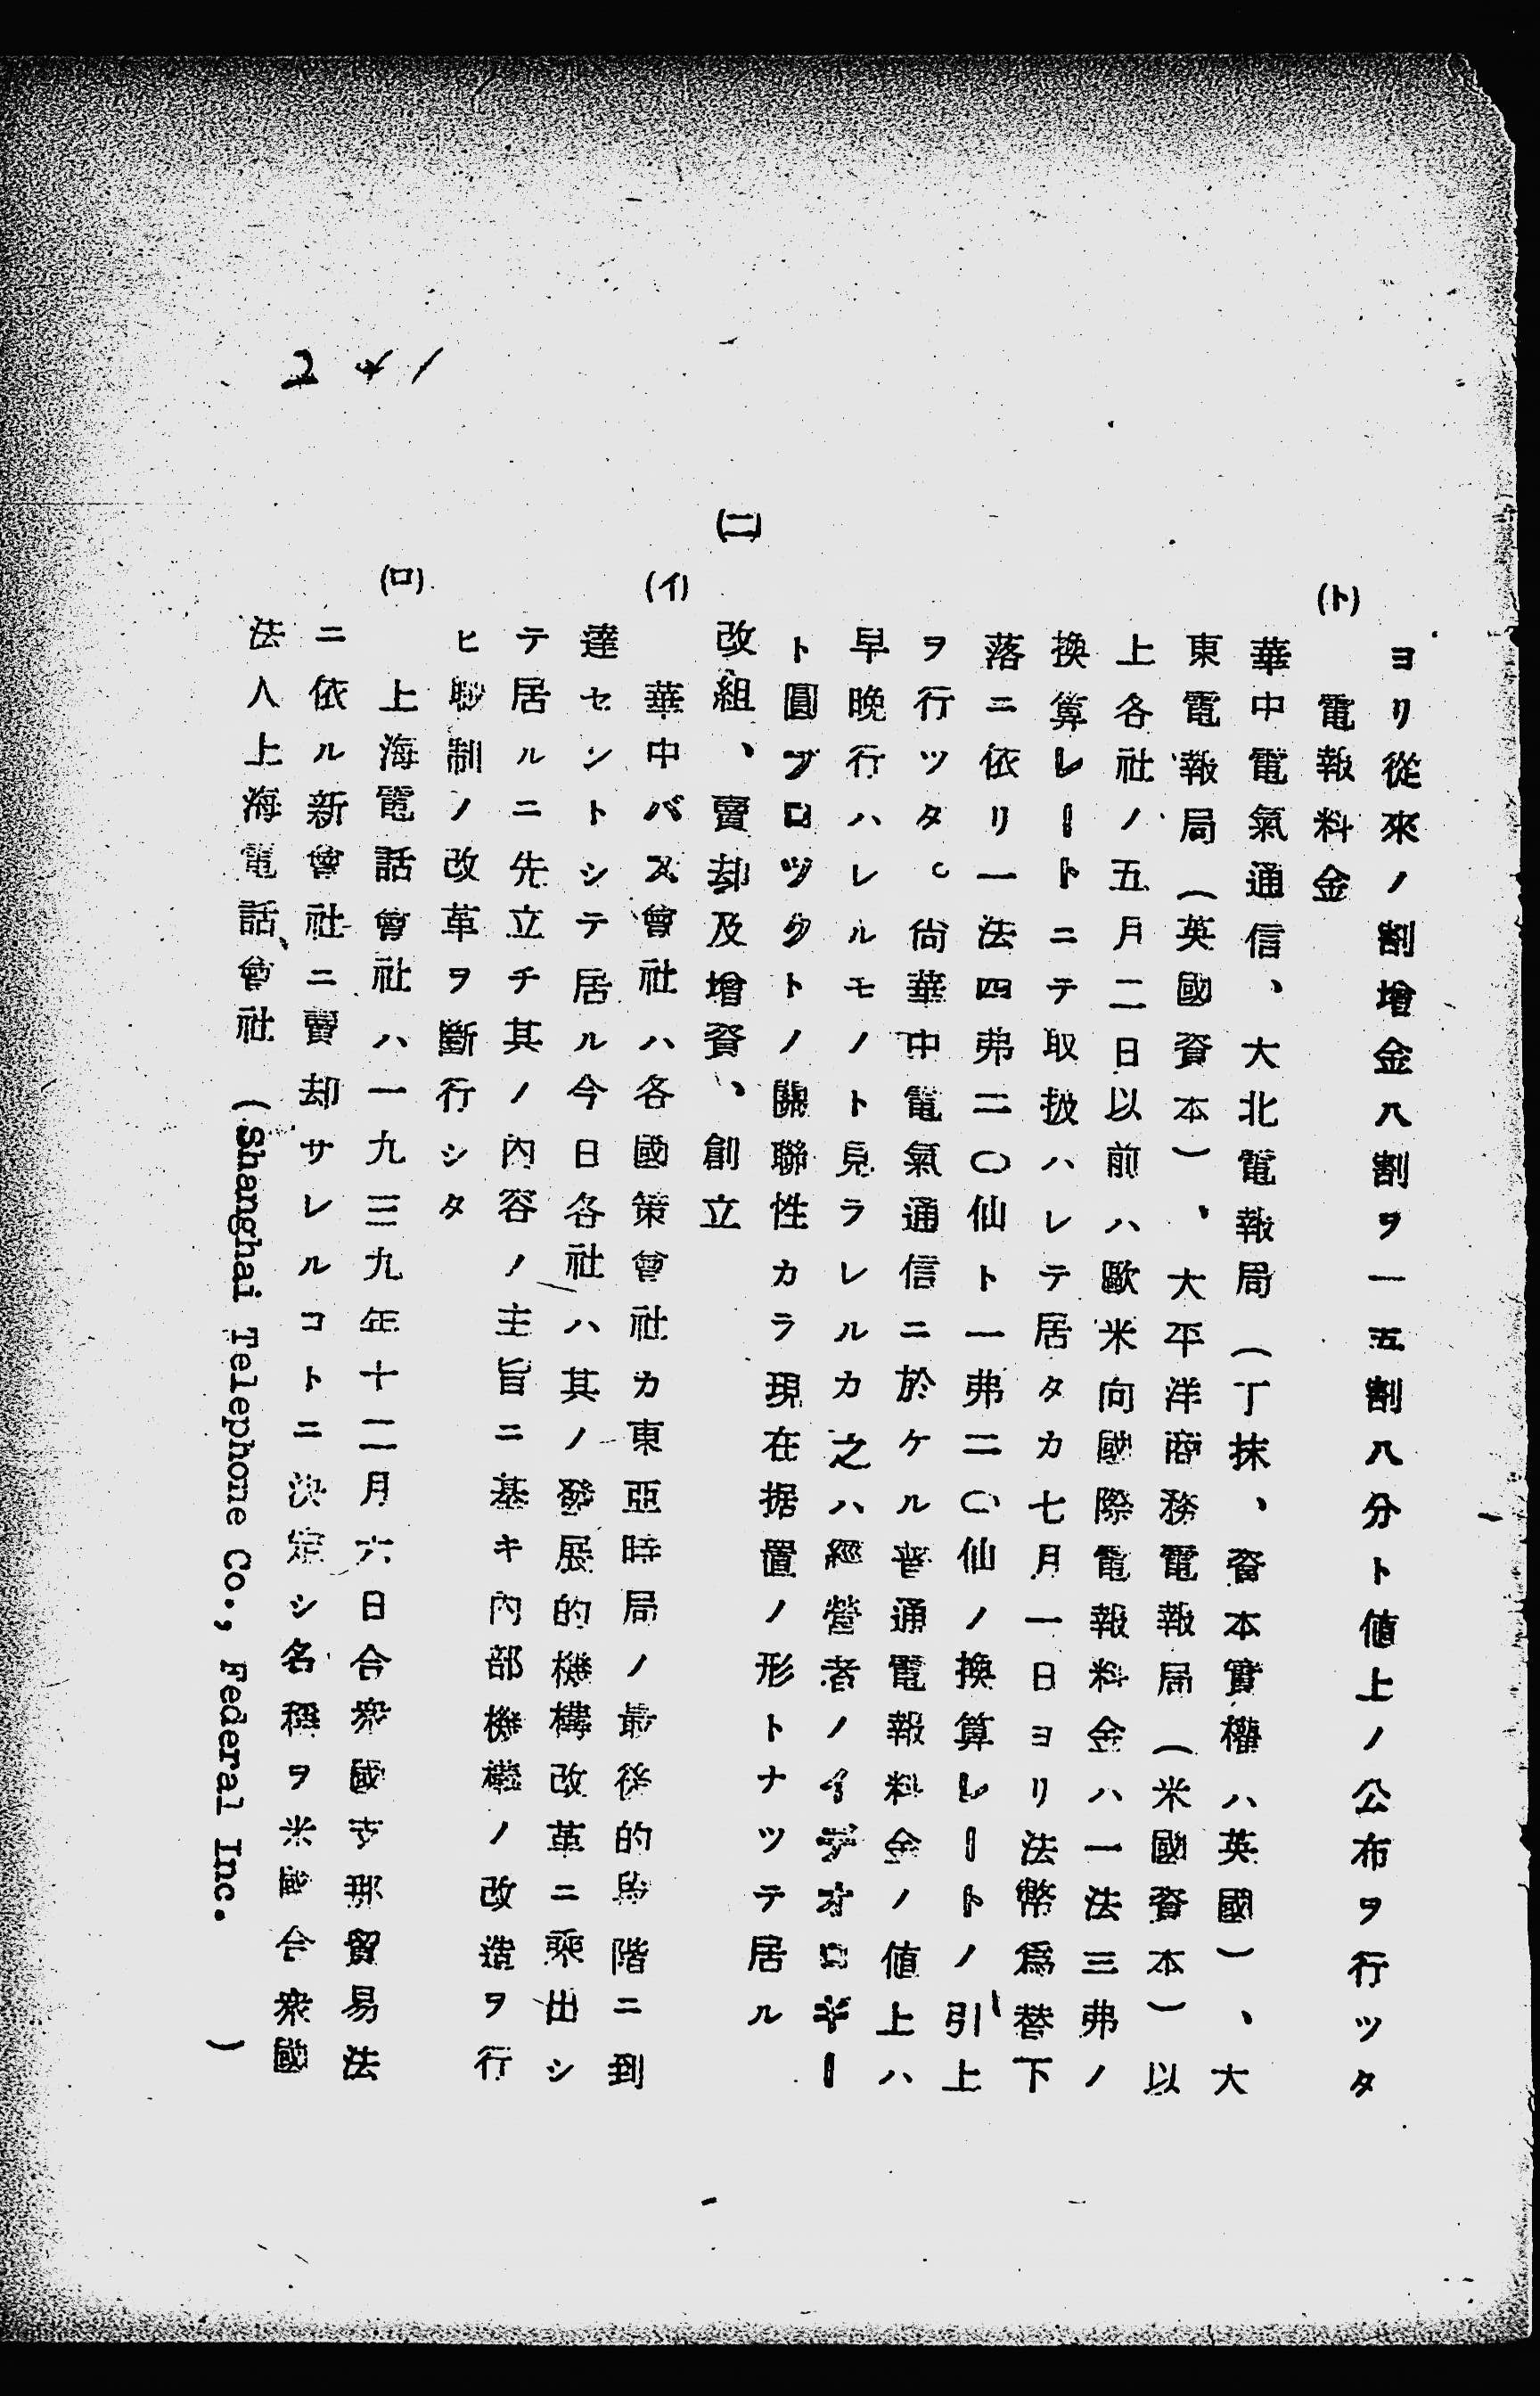 ヨリ從來ノ割增金八割ヲ一五割八分ト値上ノ公布ヲ行ツタ
(ト) 電報料金
華中電氣通信、大北電報局（丁抹、資本實權ハ英國）、大
東電報局（英國資本）、大平洋商務電報局（米國資本）以
上各社ノ五月二日以前ハ歐米向國際電報料金ハ一法三弗ノ
換算レートニテ取扱ハレテ居タカ七月一日ヨリ法幣爲替下
落ニ依リ一法四弗二〇仙ト一弗二〇仙ノ換算レートノ引上
ヲ行ツタ。尙華中電氣通信ニ於ケル普通電報料金ノ値上ハ
早晚行ハレルモノト見ラレルカ之ハ經營者ノイデオロギー
ト圓ブロツクトノ關聯性カラ現在据置ノ形トナツテ居ル
(二) 改組、賣却及增資、創立
(イ) 華中バス會社ハ各國策會社カ東亞時局ノ最後的段階ニ到
達セントシテ居ル今日各社ハ其ノ發展的機構改革ニ乘出シ
テ居ルニ先立チ其ノ內容ノ主旨ニ基キ內部機構ノ改造ヲ行
ヒ聯制ノ改革ヲ斷行シタ
(ロ) 上海電話會社ハ一九三九年十二月六日合衆國支那貿易法
ニ依ル新會社ニ賣却サレルコトニ決定シ名稱ヲ米國合衆國
法人上海電話會社（Shanghai Telephone Co., Federal Inc.）
241